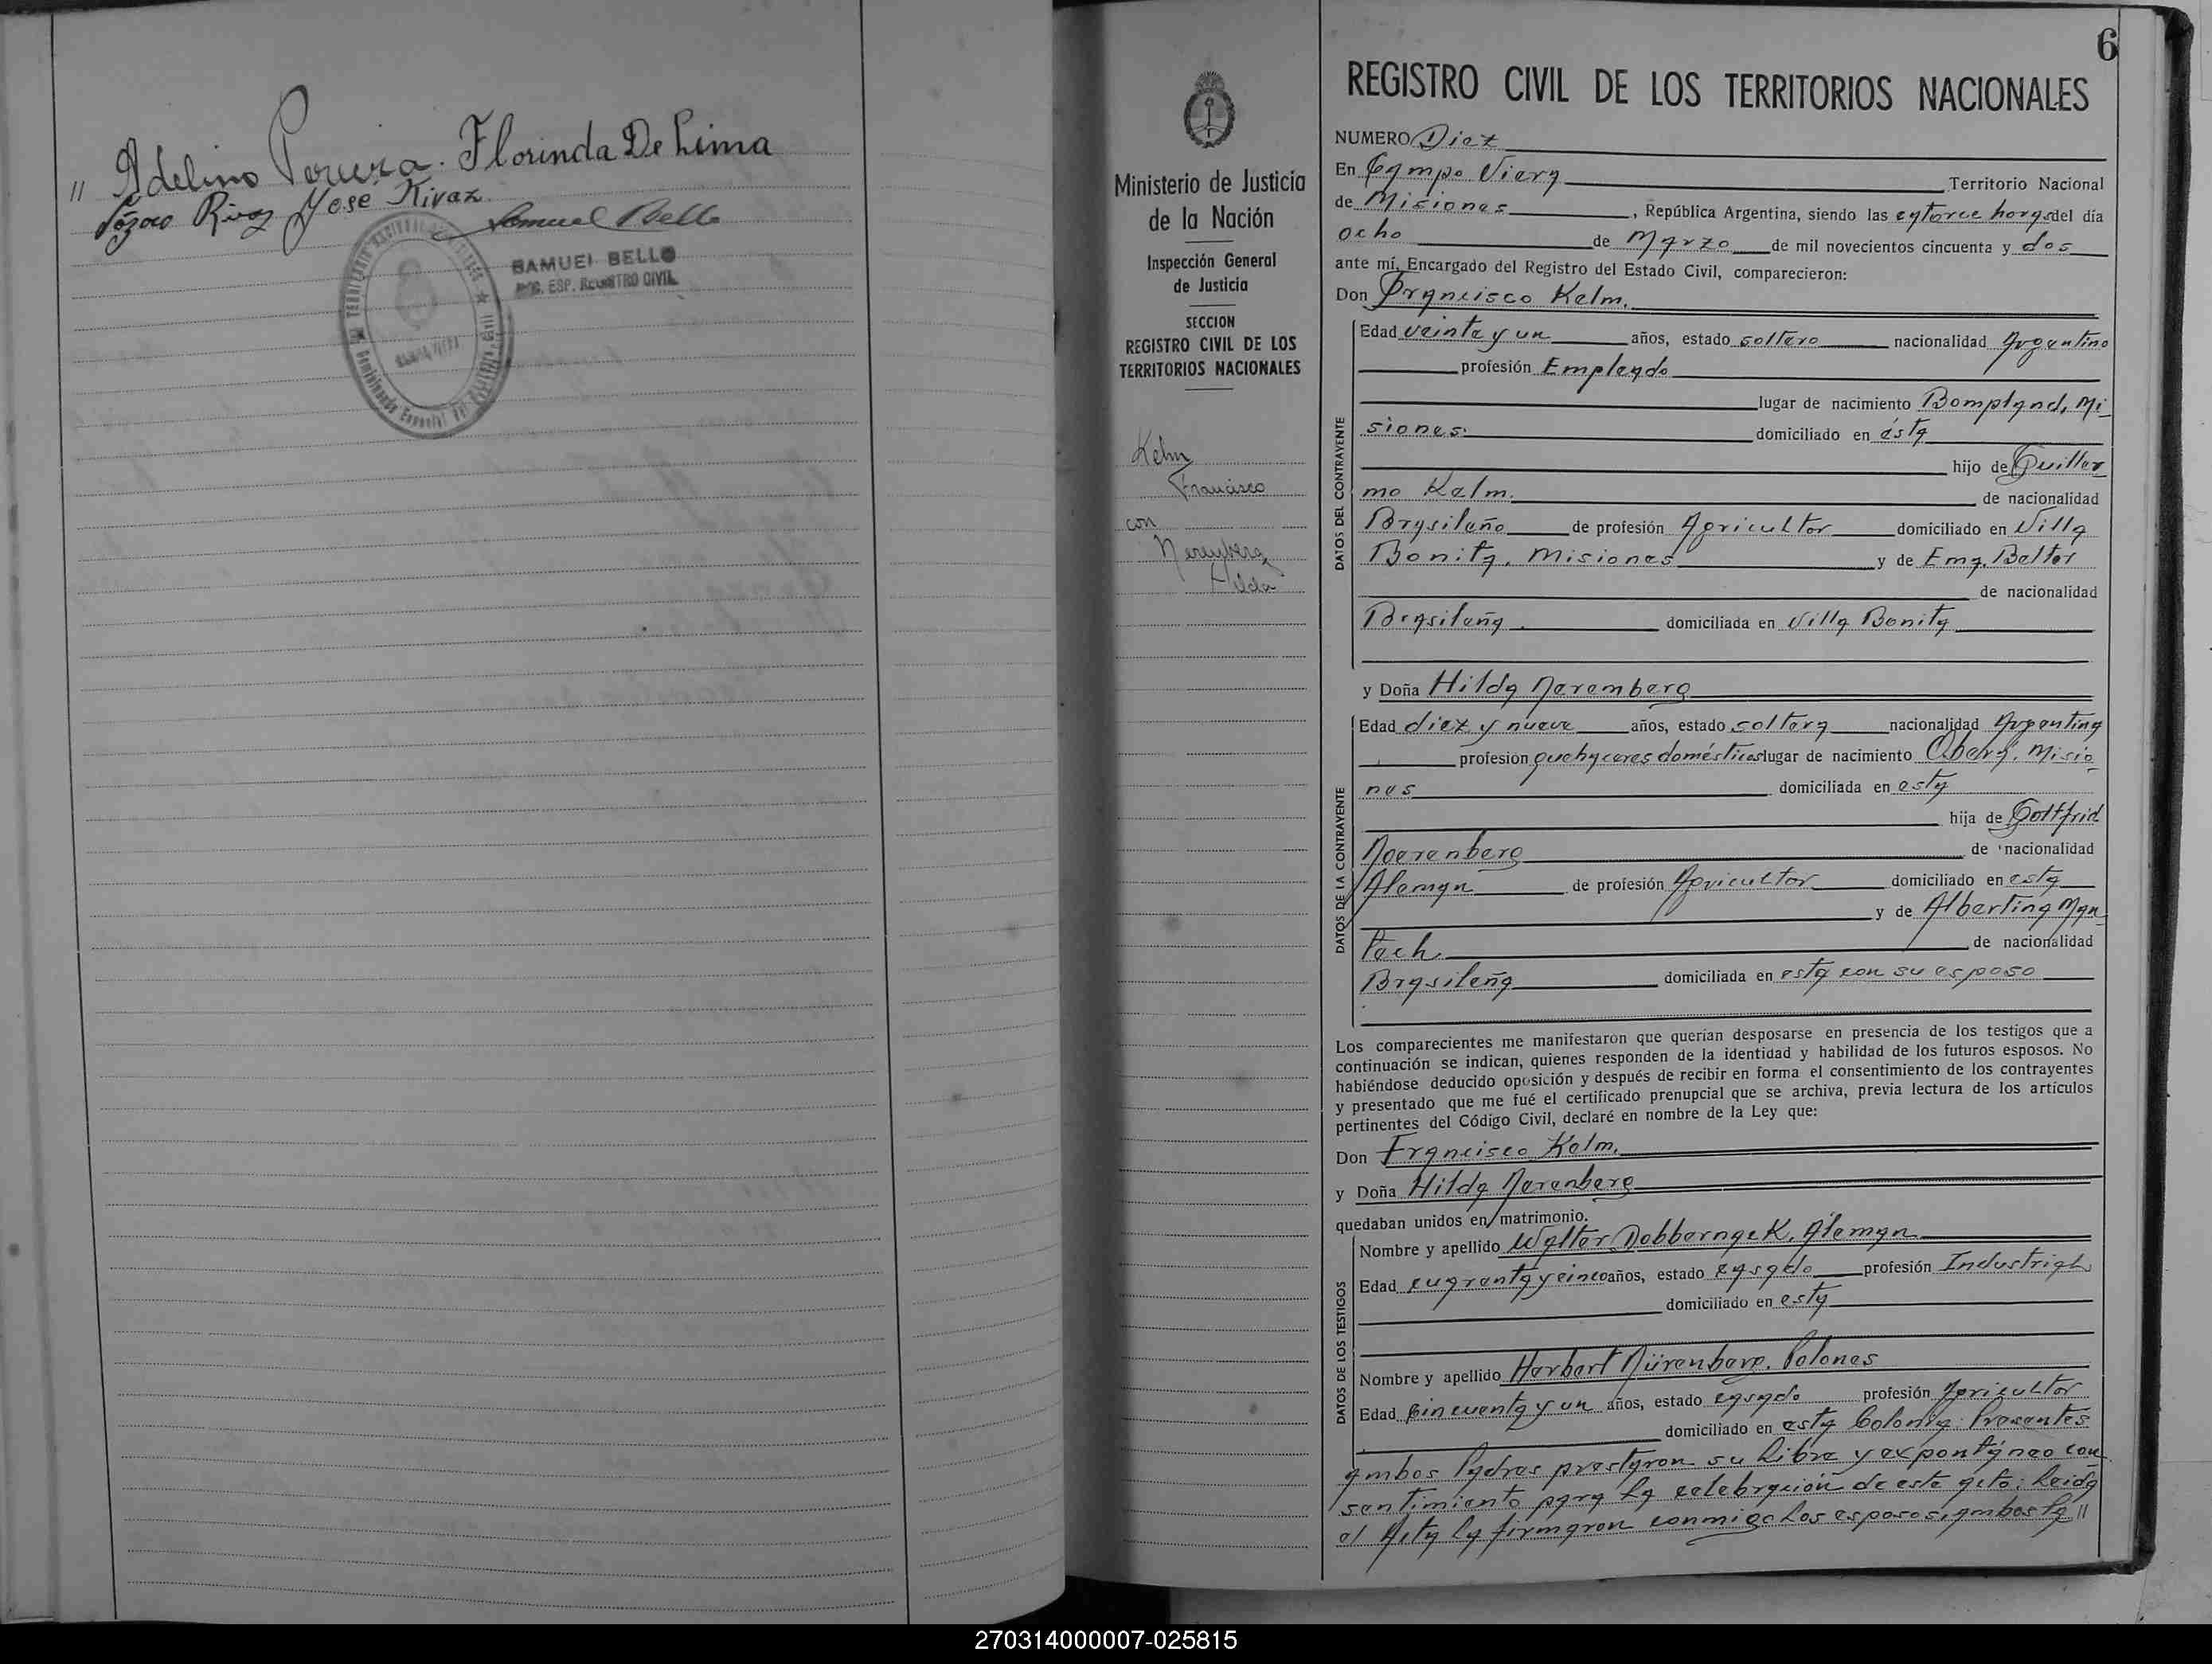 " Adelino Pereira. Florinda De Lima
Lázaro Rivas José Rivaz
Samuel Bello
SAMUEL BELLO
ENC. ESP. REGISTRO CIVIL
6
Ministerio de Justicia
de la Nación
Inspección General
de Justicia
SECCION
REGISTRO CIVIL DE LOS
TERRITORIOS NACIONALES
Kelm
Francisco
con
Nerenberg
Hilda
REGISTRO CIVIL DE LOS TERRITORIOS NACIONALES
NUMERO Diez
En Campo Viera Territorio Nacional
de Misiones, República Argentina, siendo las catorce horas del día
ocho de Marzo de mil novecientos cincuenta y dos
ante mí, Encargado del Registro del Estado Civil, comparecieron:
Don Francisco Kelm.
DATOS DEL CONTRAYENTE
Edad veinte y un años, estado soltero nacionalidad Argentino
profesión Empleado
lugar de nacimiento Bompland, Mi-
siones. domiciliado en ésta
hijo de Guiller-
mo Kelm. de nacionalidad
Brasileño de profesión Agricultor domiciliado en Villa
Bonita, Misiones y de Ema, Belter
de nacionalidad
Brasileña. domiciliada en Villa Bonita
y Doña Hilda Neremberg
DATOS DE LA CONTRAYENTE
Edad diez y nueve años, estado soltera nacionalidad Argentina
profesión quehaceres domésticos lugar de nacimiento Oberá, Misio-
nes domiciliada en esta
hija de Gottfrid
Noerenberg de nacionalidad
Aleman de profesión Agricultor domiciliado en esta
y de Albertina Man-
Pech. de nacionalidad
Brasileña domiciliada en esta con su esposo
Los comparecientes me manifestaron que querían desposarse en presencia de los testigos que a
continuación se indican, quienes responden de la identidad y habilidad de los futuros esposos. No
habiéndose deducido oposición y después de recibir en forma el consentimiento de los contrayentes
y presentado que me fué el certificado prenupcial que se archiva, previa lectura de los artículos
pertinentes del Código Civil, declaré en nombre de la Ley que:
Don Francisco Kelm.
y Doña Hilda Nerenberg
quedaban unidos en matrimonio.
DATOS DE LOS TESTIGOS
Nombre y apellido Walter Dobbernack, Aleman
Edad cuarenta y cinco años, estado casado profesión Industrial
domiciliado en esta
Nombre y apellido Herbert Nürenberg. Polones
Edad cincuenta y un años, estado casado profesión Agricultor
domiciliado en esta Colonia. Presentes
ambos Padres prestaron su libre y expontáneo con-
sentimiento para la celebración de este acto; Leida
el Acta la firmaron conmigo los esposos, ambos Pa"
270314000007-025815